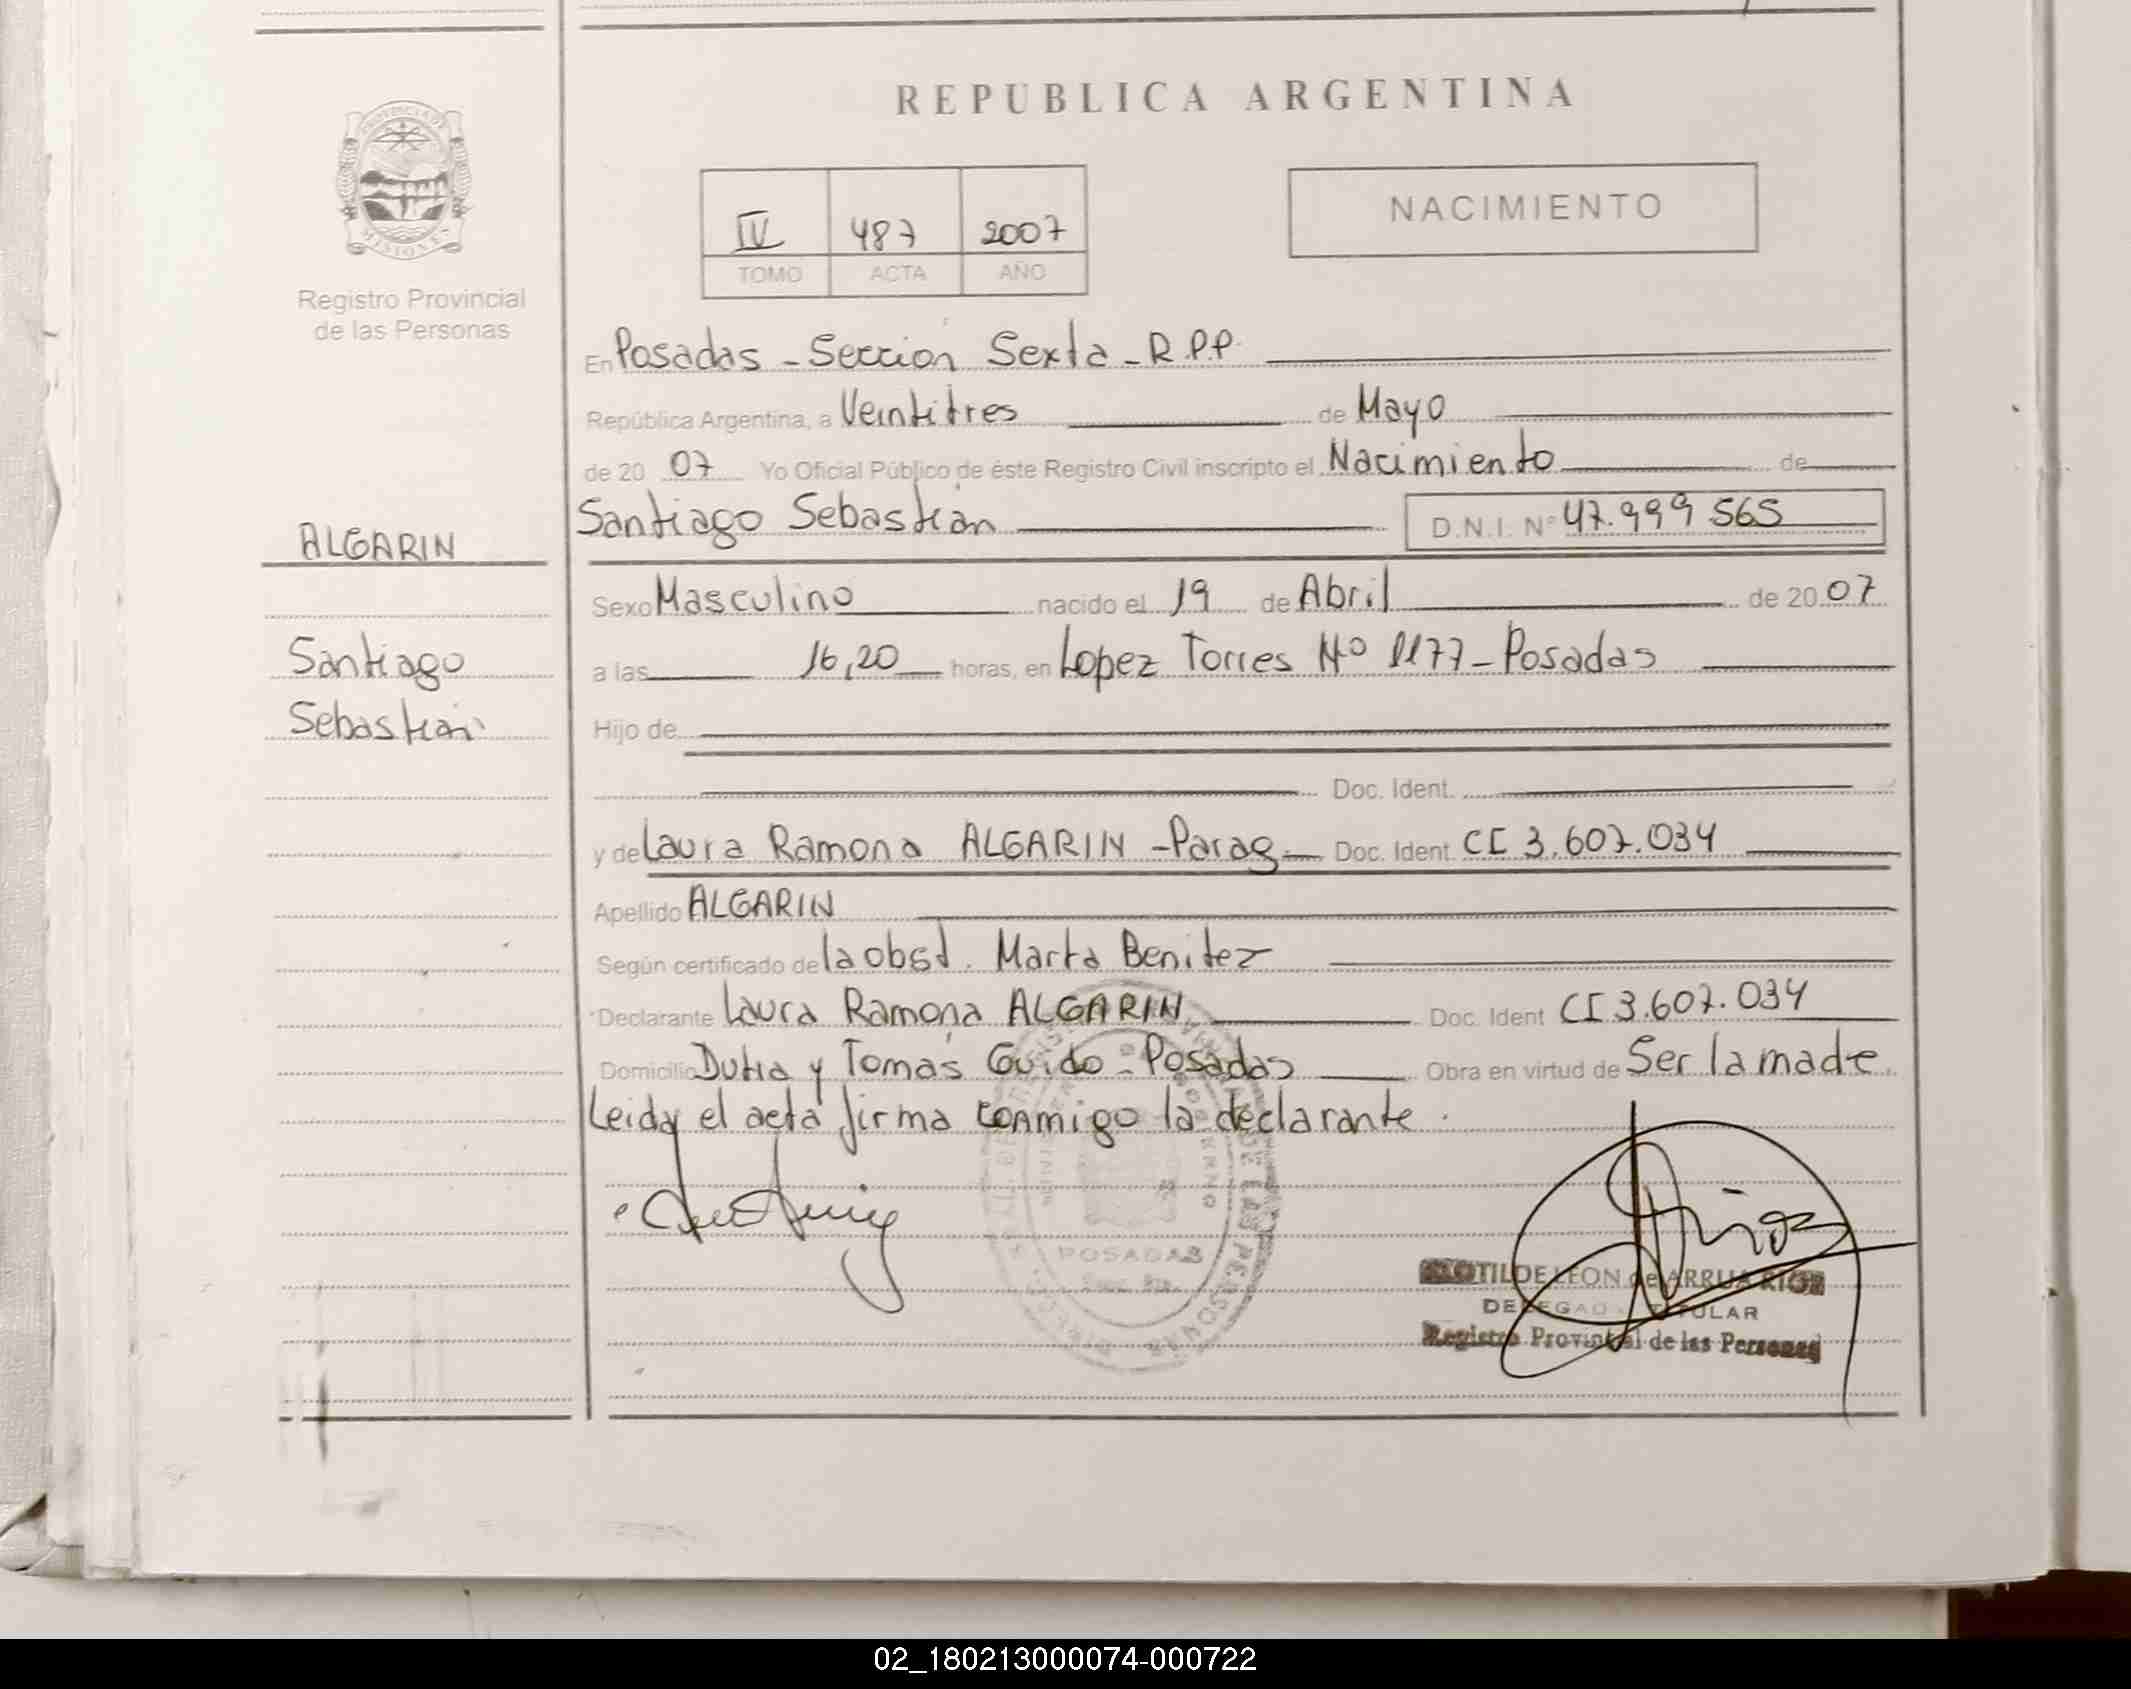 REPUBLICA ARGENTINA
PROVINCIA DE
MISIONES
Registro Provincial
de las Personas
IV 487 2007
TOMO ACTA AÑO
NACIMIENTO
En Posadas - Sección Sexta - R.P.P.
República Argentina, a Veintitres de Mayo
de 20 07 Yo Oficial Público de éste Registro Civil inscripto el Nacimiento de
Santiago Sebastián D.N.I. Nº 47.999 565
ALGARIN
Santiago
Sebastián
Sexo Masculino nacido el 19 de Abril de 20 07
a las 16,20 horas, en Lopez Torres Nº 1177 - Posadas
Hijo de
Doc. Ident.
y de Laura Ramona ALGARIN - Parag. Doc. Ident. CI 3.607.034
Apellido ALGARIN
Según certificado de la obst. Marta Benitez
Declarante Laura Ramona ALGARIN Doc. Ident CI 3.607.034
Domicilio Dutra y Tomás Guido - Posadas Obra en virtud de Ser la madre
Leida el acta firma conmigo la declarante.
POSADAS
CLOTILDE LEON de ARRUA RIOS
DELEGADO TITULAR
Registro Provincial de las Personas
02_180213000074-000722